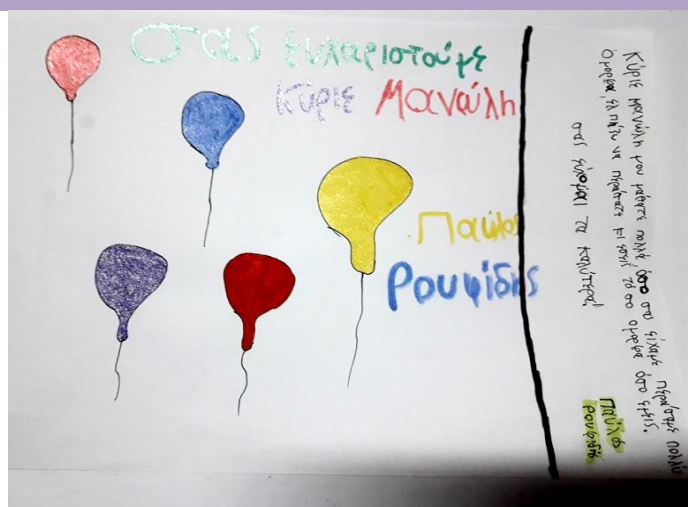 σας ευχαριστούμε
Κύριε Μανώλη
Παύλος
Ρουφίδης
Κύριε Μανώλη μου μάθατε πολλά όσο σας είχαμε περάσαμε πολύ
όμορφα, ελπίζω να περάσατε κι εσείς τόσο όμορφα όσο εμείς.
σας εύχομαι τα καλύτερα!
Παύλος
Ρουφίδης